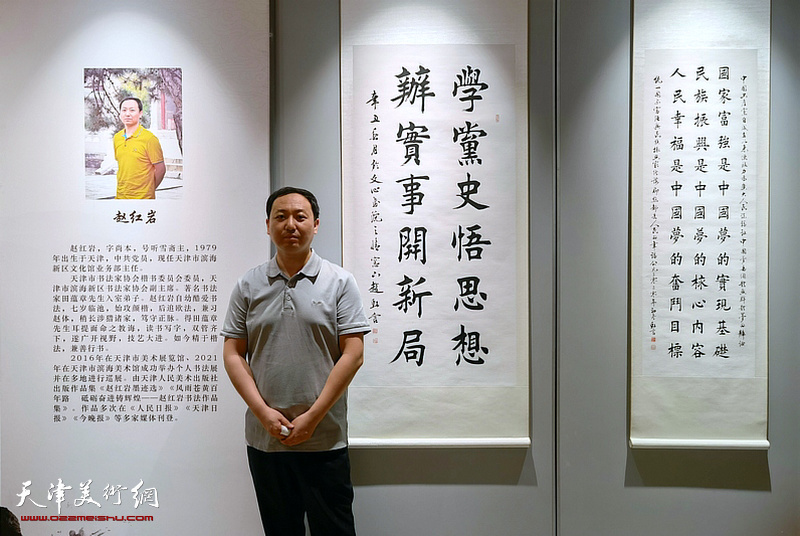 赵红岩
赵红岩，字尚本，号听雪斋主，1979
年出生于天津，中共党员，现任天津市滨海
新区文化馆业务部主任。
天津市书法家协会楷书委员会委员，天
津市滨海新区书法家协会副主席。著名书法
家田蕴章先生入室弟子。赵红岩自幼酷爱书
法，七岁临池，始攻颜楷，后追欧法，兼习
赵体，稍长涉猎诸家，笃守正脉。得田蕴章
先生耳提面命之教诲，读书写字，双管齐
下，遂广开视野，技艺大进。如今精于楷
法，兼善行书。
2016年在天津市美术展览馆、2021
年在天津市滨海美术馆成功举办个人书法展
并在多地进行巡展。由天津人民美术出版社
出版作品集《赵红岩墨迹选》《风雨苍黄百
年路 砥砺奋进铸辉煌——赵红岩书法作品
集》。作品多次在《人民日报》《天津日
报》《今晚报》等多家媒体刊登。
學黨史悟思想
辦實事開新局
國家富強是中國夢的實現基礎
民族振興是中國夢的核心内容
人民幸福是中國夢的奮鬥目標
天津美術網
www.022meishu.com